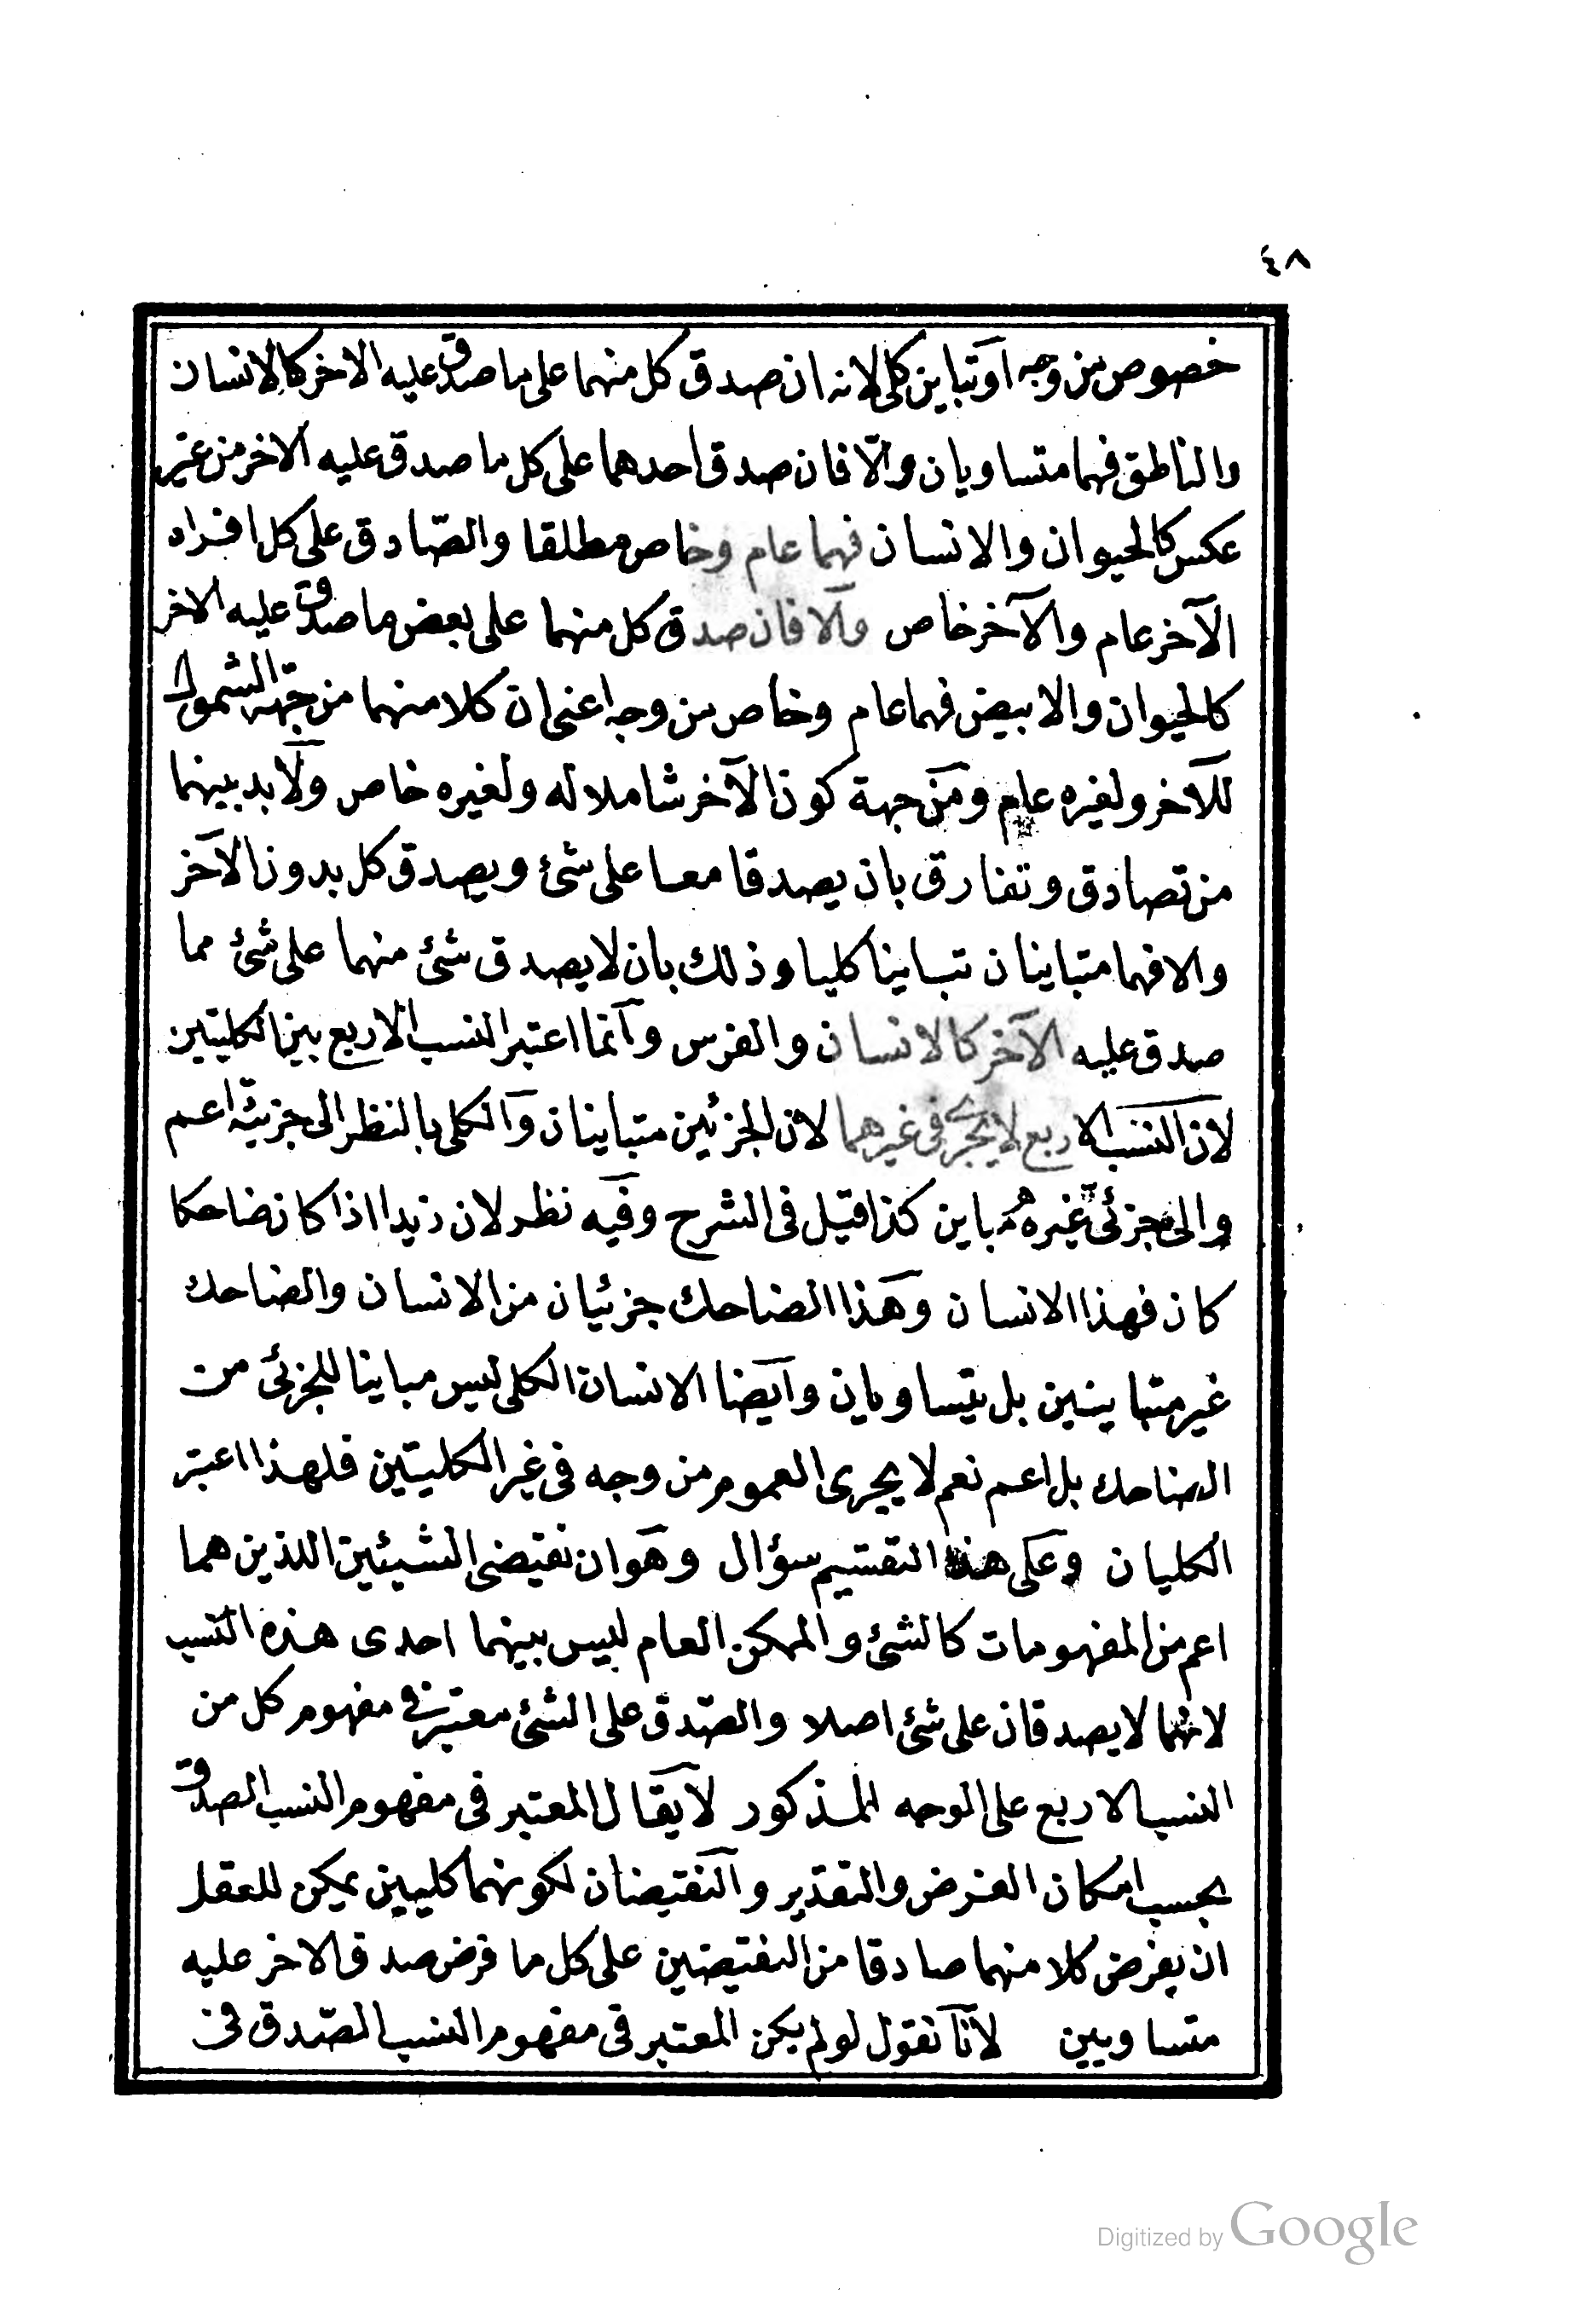 ٤٨
خصوص من وجه او تباين كلى لانه ان صدق كل منهما على ما صدق عليه الاخر كالانسان
والناطق فهما متساويان والّا فان صدق احدهما على كل ما صدق عليه الاخر من غير
عكس كالحيوان والانسان فهما عام وخاص مطلقا والصّادق على كل افراد
الآخر عام والآخر خاص والا فان صدق كل منهما على بعض ما صدق عليه الاخر
كالحيوان والابيض فهما عام وخاص من وجه اعنى ان كلا منهما من جهة الشمول
للآخر ولغيره عام ومن جهة كون الآخر شاملا له ولغيره خاص ولا بد بينهما
من تصادق وتفارق بان يصدقا معا على شئ ويصدق كل بدون الآخر
والا فهما متباينان تباينا كليا وذلك بان لا يصدق شئ منهما على شئ مما
صدق عليه الآخر كالانسان والفرس وانما اعتبر النسب الاربع بين الكليتين
لان النسب الاربع لا يجرى فى غيرهما لان الجزئين متباينان والكلى بالنظر الى جزئيّة اعم
والى جزئى غيره مباين كذا قيل فى الشرح وفيه نظر لان زيدا اذا كان ضاحكا
كان فهذا الانسان وهذا الضاحك جزئيان من الانسان والضاحك
غير متباينين بل يتساويان وايضا الانسان الكلى ليس مباينا للجزئى من
الضاحك بل اعم نعم لا يجرى العموم من وجه فى غير الكليتين فلهذا اعتبر
الكليان وعلى هذا التقسيم سؤال وهو ان نقيضى الشيئين اللذين هما
اعم من المفهومات كالشئ والممكن العام ليس بينهما احدى هذه النسب
لانهما لا يصدقان على شئ اصلا والصّدق على الشئ معتبر فى مفهوم كل من
النسب الاربع على الوجه المذكور لا يقال المعتبر فى مفهوم النسب الصدق
بحسب امكان الفرض والتقدير والنقيضان لكونهما كليين يمكن للعقل
ان يفرض كلا منهما صادقا من النقيضين على كل ما فرض صدق الاخر عليه
متساويين لانا نقول لو لم يكن المعتبر فى مفهوم النسب الصّدق فى
Digitized by Google